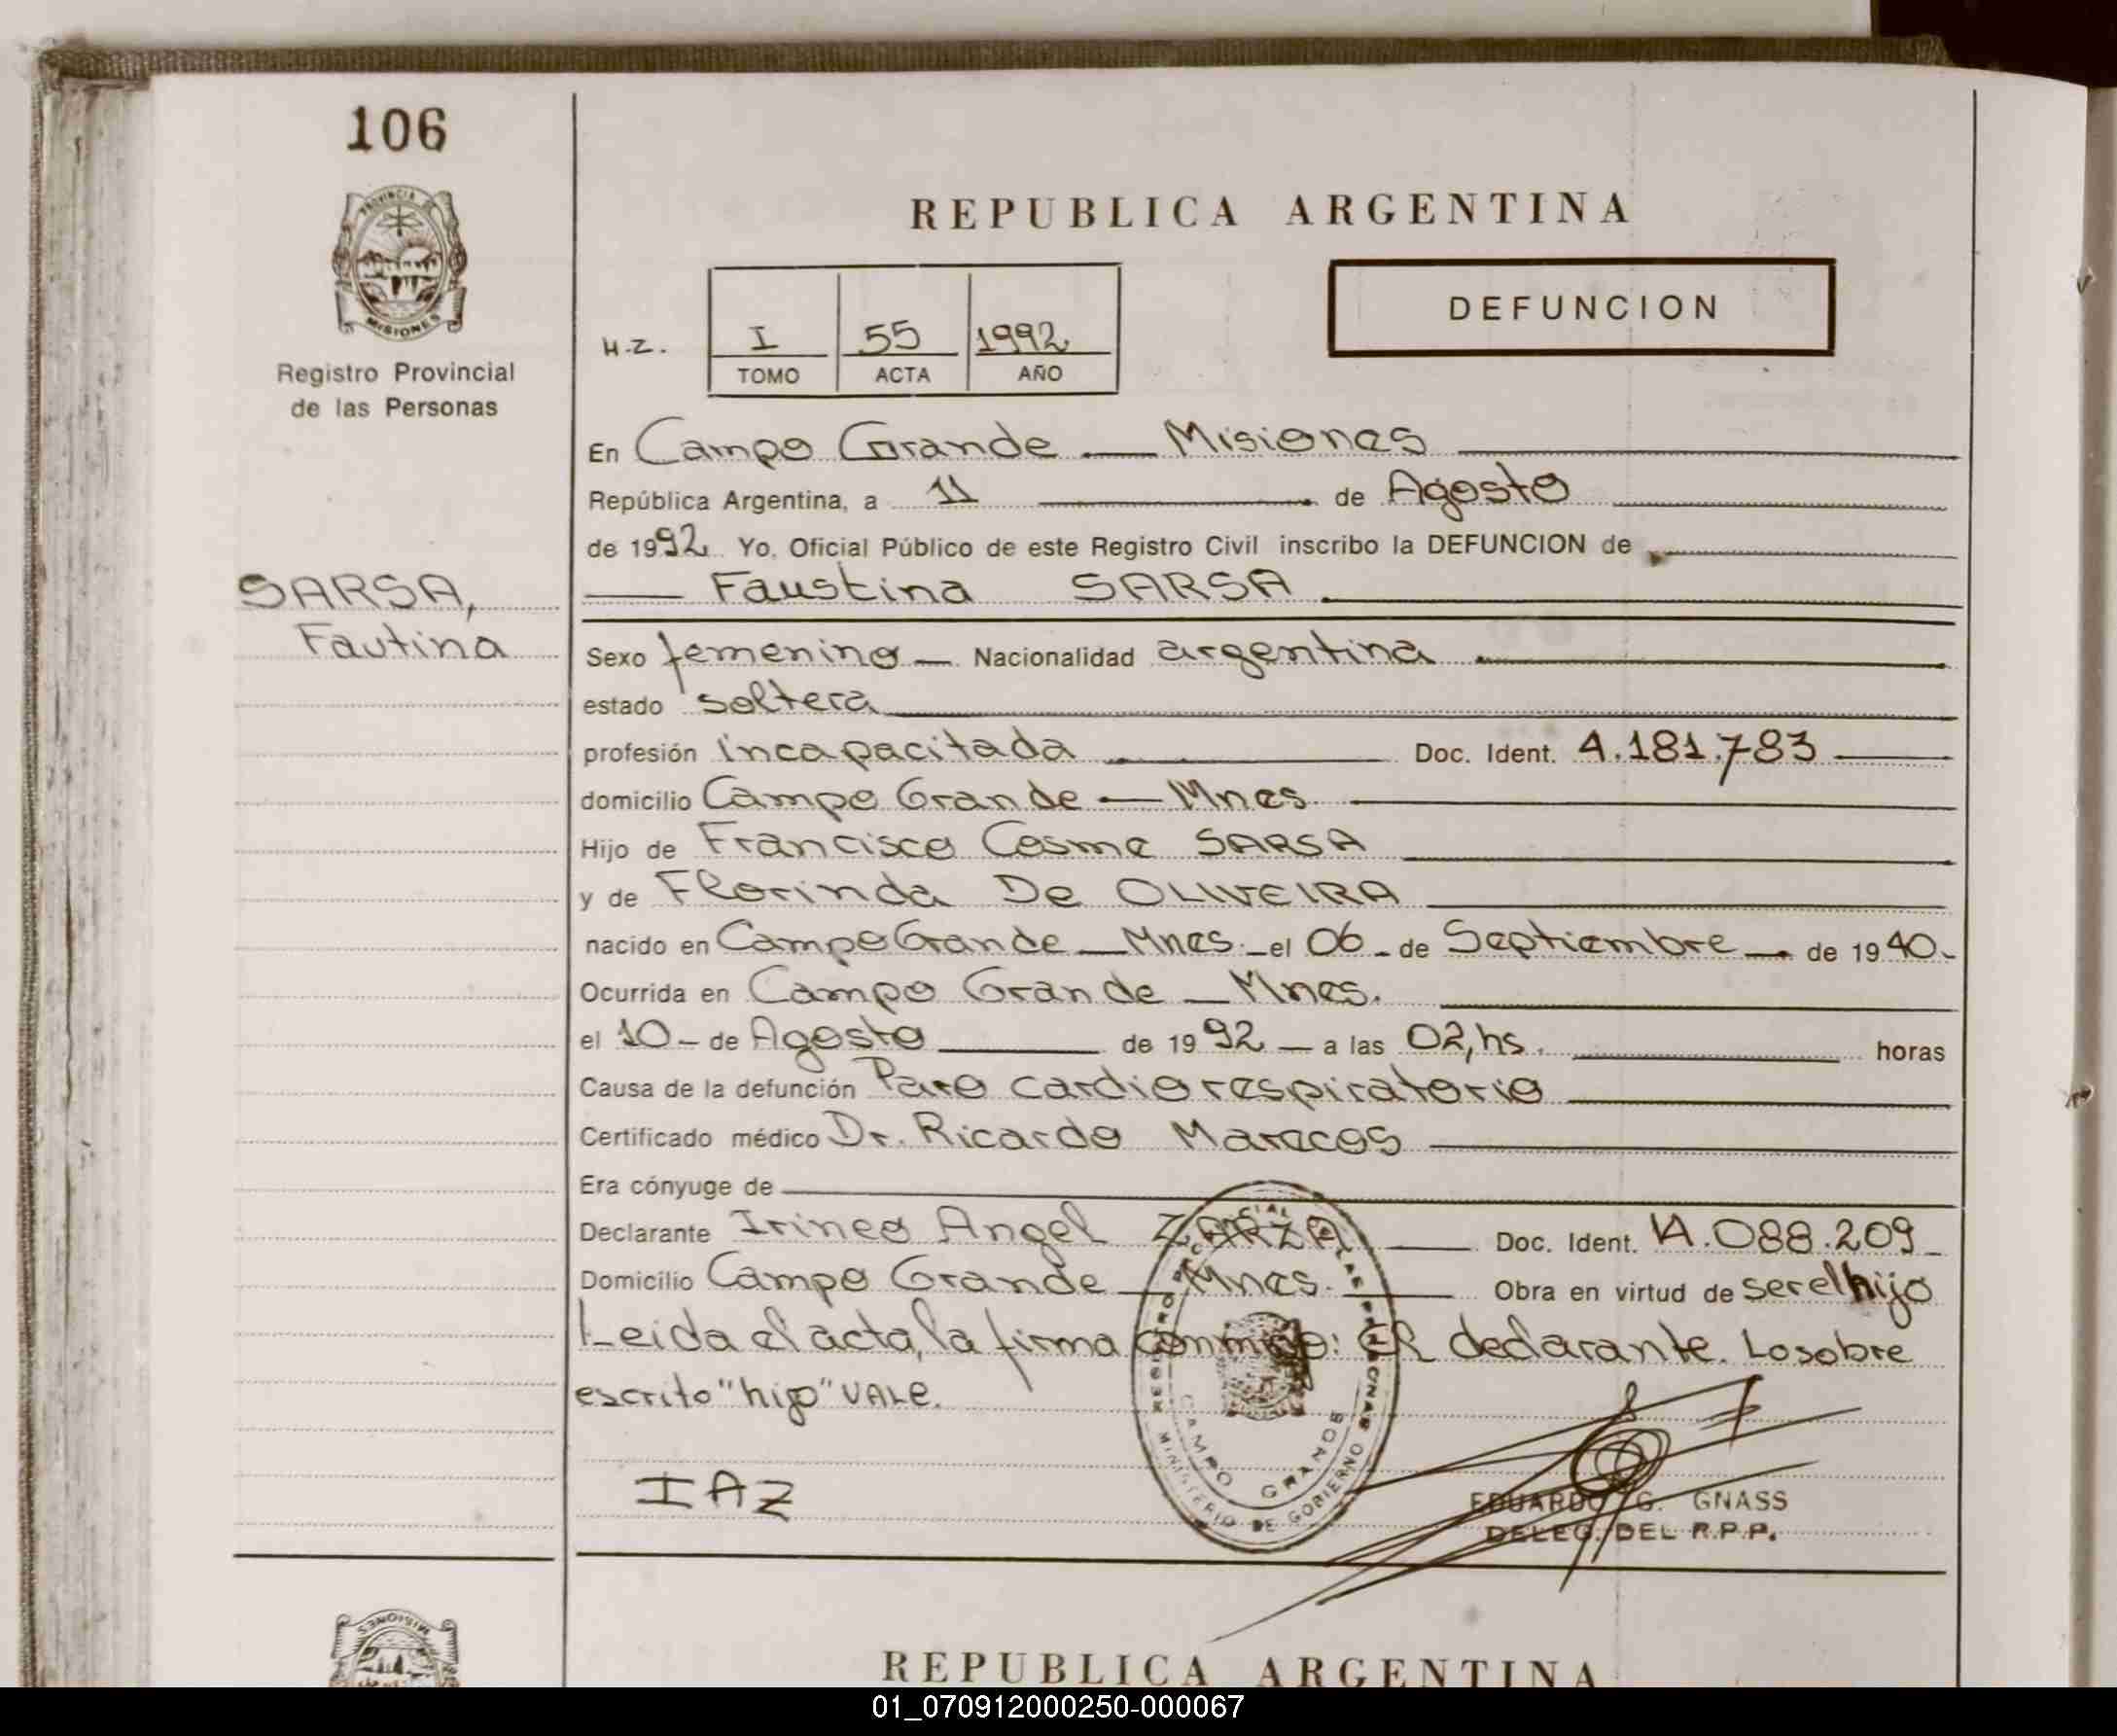 106
PROVINCIA DE
MISIONES
Registro Provincial
de las Personas
REPUBLICA ARGENTINA
DEFUNCION
H.Z. I 55 1992
TOMO ACTA AÑO
En Campo Grande — Misiones
República Argentina, a 11 de Agosto
de 1992 Yo, Oficial Público de este Registro Civil inscribo la DEFUNCION de
SARSA,
Fautina
Faustina SARSA
Sexo femenino — Nacionalidad argentina
estado soltera
profesión incapacitada Doc. Ident. 4.181.783
domicilio Campo Grande — Mnes
Hijo de Francisco Cosme SARSA
y de Florinda De OLIVEIRA
nacido en Campo Grande — Mnes. — el 06 - de Septiembre — de 1940.
Ocurrida en Campo Grande — Mnes.
el 10 - de Agosto de 1992 — a las 02,hs. horas
Causa de la defunción Paro cardiorespiratorio
Certificado médico Dr. Ricardo Marcos
Era cónyuge de
Declarante Irineo Angel ZARZA Doc. Ident. 14.088.209
Domicilio Campo Grande — Mnes. Obra en virtud de ser el hijo
Leida el acta, la firma conmigo: El declarante. Lo sobre
escrito "hijo" VALE.
CAMPO GRANDE
MINISTERIO DE GOBIERNO
IAZ
EDUARDO G. GNASS
DELEG. DEL R.P.P.
MISIONES
REPUBLICA ARGENTINA
01_070912000250-000067